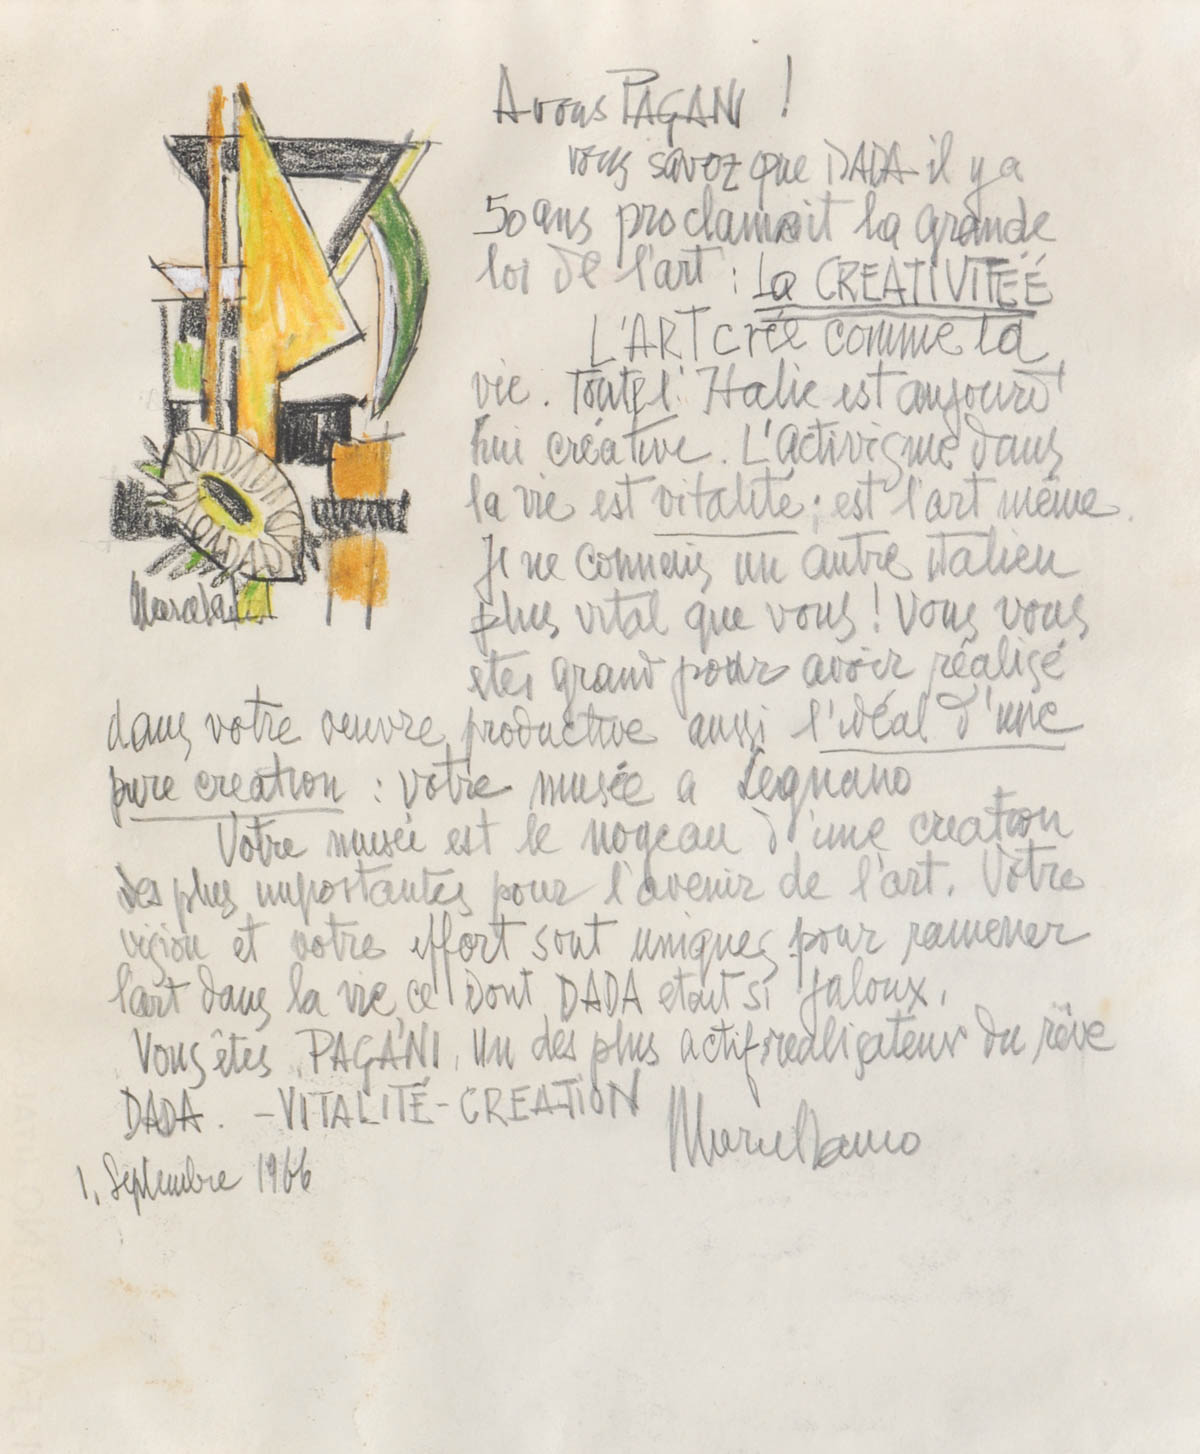 A vous PAGANI !
vous savez que DADA il y a
50 ans proclamait la grande
loi de l'art : La CREATIVITEÉ
L'ART crée comme la
vie. Toute l'Italie est aujourd'
hui créative. L'activisme dans
la vie est vitalité ; est l'art même.
Je ne connais un autre italien
plus vital que vous ! Vous vous
etes grand pour avoir réalisé
dans votre oeuvre productive aussi l'idéal d'une
pure creation : votre musée a Legnano
Votre musée est le noyeau d'une creation
des plus importantes pour l'avenir de l'art. Votre
vision et votre effort sont uniques pour ramener
l'art dans la vie, ce dont DADA etait si jaloux.
Vous êtes, PAGANI, un des plus actifs realisateur du rêve
DADA. - VITALITÉ - CREATION
Marcel Janco
1. Septembre 1966
DADA
FABRIANO